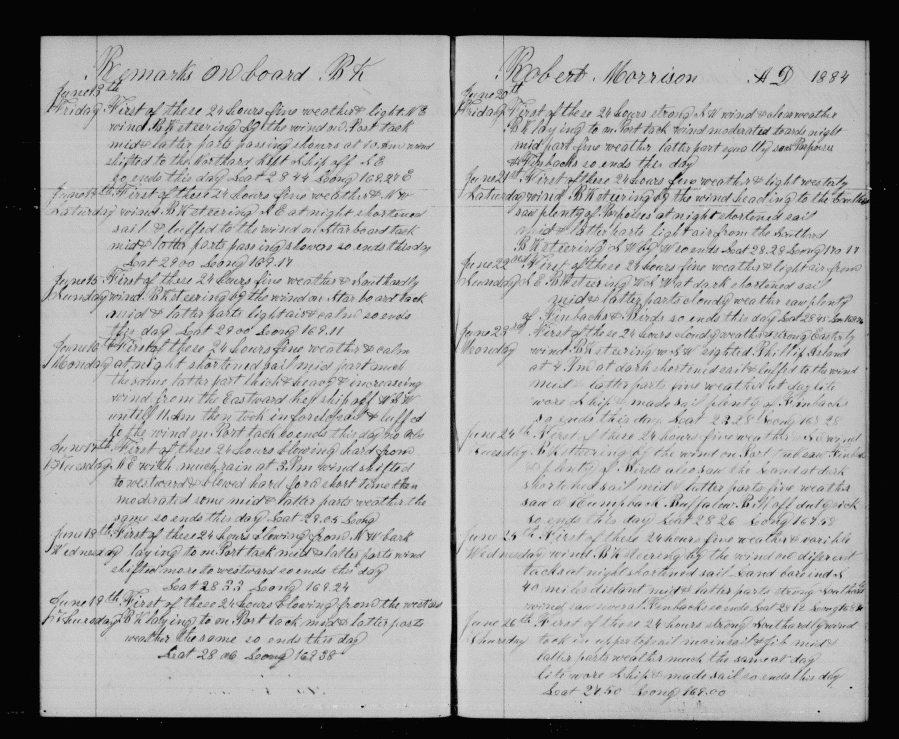 Remarks on board Bk
June 13th
Friday First of these 24 hours fine weather & light N E
wind Bk steering by the wind on Port tack
mid & latter parts passing showers at 10 Am wind
shifted to the Northard kept Ship off S E
so ends this day Lat 28 44 Long 168.24 E
June 14th First of these 24 hours fine weather & N W
Saturday wind Bk steering S E at night shortened
sail & luffed to the wind on Starboard tack
mid & latter parts passing showers so ends this day
Lat 29 00 Long 169.17
June 15 First of these 24 hours fine weather & Southardly
Sunday wind Bk steering by the wind on Starboard tack
mid & latter parts light air & calm so ends
this day Lat 29 00 Long 169.11
June 16th First of these 24 hours fine weather & calm
Monday at night shortened sail mid part much
the same latter part thick & heavy & increasing
wind from the Eastward kept ship off W S W
untill 11 Am then took in foretopsail & luffed
to the wind on Port tack so ends this day no obs
June 17th First of these 24 hours blowing hard from
Tuesday N E with much rain at 3 Pm wind shifted
to westward & blowed hard for a short time then
modrated some mid & latter parts weather the
same so ends this day Lat 28.05 Long
June 18th First of these 24 hours blowing from N W bark
Wednesday laying to on Port tack mid & latter parts wind
shifted more to westward so ends this day
Lat 28 33 Long 168.24
June 19th First of these 24 hours blowing from the westard
Thursday Bk laying to on Port tack mid & latter parts
weather the same so ends this day
Lat 28 06 Long 168 38
Robert Morrison A D 1884
June 20th
Friday First of these 24 hours strong S W wind & clear weather
Bk laying to on Port tack wind moderated towards night
mid part fine weather latter part equally saw Porpoises
& Finbacks so ends this day
June 21st First of these 24 hours fine weather & light westerly
Saturday wind Bk steering by the wind heading to the
saw plenty of Porpoises at night shortened sail
mid & latter parts light air from the Southard
Bk steering S W by W so ends Lat 28.28 Long 170 17
June 22nd First of these 24 hours fine weather & light air from
Sunday S E Bk steering W S W at dark shortened sail
mid & latter parts cloudy weather saw plenty
of Finbacks & Birds so ends this day Lat 28 45 Lon
June 23rd First of these 24 hours cloudy weather strong Easterly
Monday wind Bk steering W S W sighted Phillip Island
at 4 Pm at dark shortened sail & luffed to the wind
mid & latter parts fine weather at day lite
wore Ship & made sail plenty of Finbacks
so ends this day Lat 28 28 Long 168 28
June 24th First of these 24 hours fine weather & S E wind
Tuesday Bk steering by the wind on Port tack saw Finbacks
& plenty of Birds also saw the Land at dark
shortened sail mid & latter parts fine weather
saw a Humpback Buffalow Bill off duty sick
so ends this day Lat 28 26 Long 167 58
June 25th First of these 24 hours fine weather & varible
Wednesday wind Bk steering by the wind on diferent
tacks at night shortened sail Land bareing S
40 miles distant mid & latter parts strong Southardly
wind saw several Finbacks so ends Lat Long
June 26th First of these 24 hours strong Southardly wind
Thursday took in upper topsail mainsail & jib mid &
latter parts weather much the same at day
lite wore ship & made sail so ends this day
Lat 27.50 Long 169.00